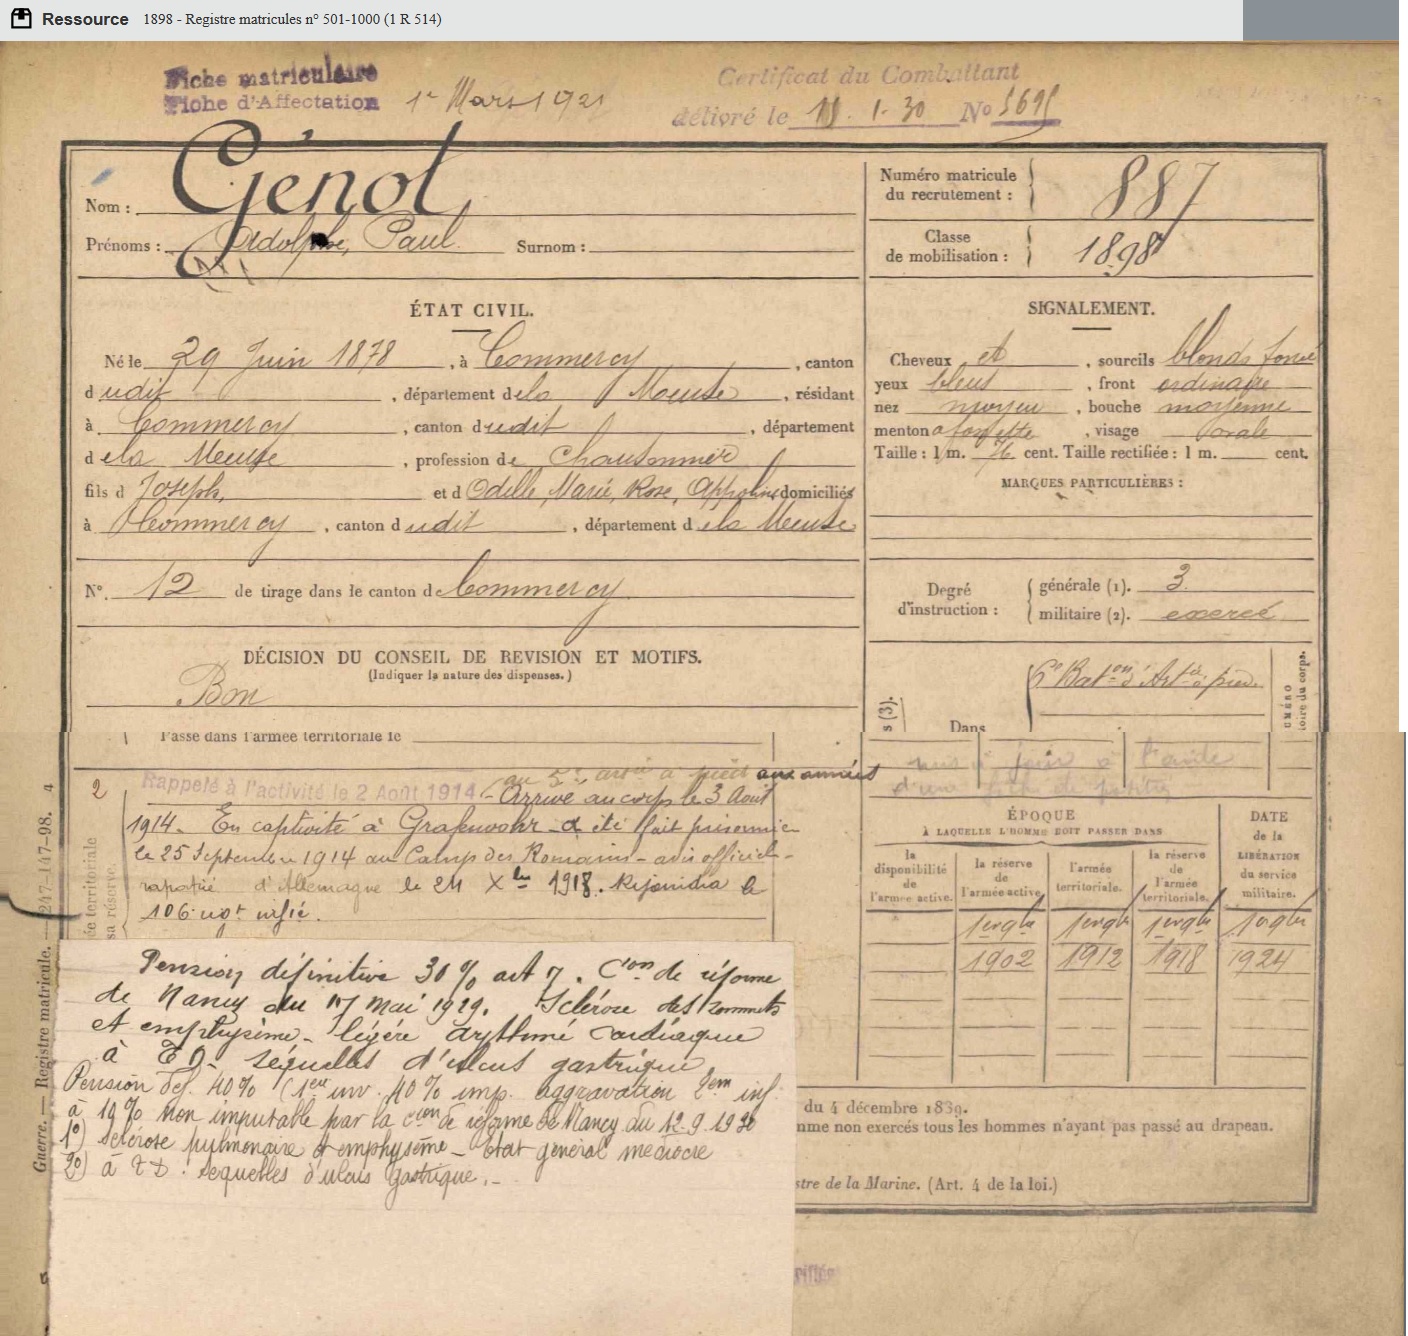 Ressource 1898 - Registre matricules n° 501-1000 (1 R 514)
Fiche matriculaire
Fiche d'Affectation 1er Mars 1921
Certificat du Combattant
délivré le 1. 30 No
Nom : Génot
Prénoms : Adolphe, Paul Surnom :
Numéro matricule du recrutement : 887
Classe de mobilisation : 1898
ÉTAT CIVIL.
Né le 29 Juin 1878, à Commercy, canton
dudit, département de la Meuse, résidant
à Commercy, canton dudit, département
de la Meuse, profession de Chaudronnier
fils d Joseph, et d Odelle, Marie, Rose, domiciliés
à Commercy, canton dudit, département de la Meuse
N°. 12 de tirage dans le canton de Commercy
DÉCISION DU CONSEIL DE REVISION ET MOTIFS.
(Indiquer la nature des dispenses.)
Bon
SIGNALEMENT.
Cheveux et, sourcils blonds foncé
yeux bleus, front ordinaire
nez moyen, bouche moyenne
menton à fossette, visage ovale
Taille : 1 m. 76 cent. Taille rectifiée : 1 m. cent.
MARQUES PARTICULIÈRES :
Degré d'instruction : générale (1). 3
militaire (2). exercé
s (3).
Dans
6e Baton d'Artie à pied.
UMÉRO
toire du corps.
Passé dans l'armée territoriale le
2
ée territoriale
sa réserve.
Rappelé à l'activité le 2 Août 1914 au 5e artie à pied aux armées
Arrivé au corps le 3 Août
1914. En captivité à Grafenwohr - a été fait prisonnier
le 25 Septembre 1914 au Camp des Romains - avis officiel -
rapatrié d'Allemagne le 24 Xbre 1918. Rejoindra le
106
mis à jour à l'aide
d'un
ÉPOQUE
À LAQUELLE L'HOMME DOIT PASSER DANS
la disponibilité de l'armée active.
la réserve de l'armée active.
l'armée territoriale.
la réserve de l'armée territoriale.
DATE de la LIBÉRATION du service militaire.
1er 9bre 1er 9bre 1er 9bre 1er 9bre
1902 1912 1918 1924
Guerre. — Registre matricule. — 247-147-98. 4
Pension définitive 30 % art 7. Cion de réforme
de Nancy du 17 Mai 1929. Sclérose des sommets
et emphysème - légère arythmie cardiaque
à E D. séquelles d'ulcus gastrique
Pension def. 40 % (1ere inv. 40 % imp. aggravation 2em inf.
à 10 % non imputable par la cion de réforme de Nancy du 12.9.1930
1°) Sclérose pulmonaire et emphysème - Etat général médiocre
2°) à E D : séquelles d'ulcus gastrique. -
du 4 décembre 1839.
mme non exercés tous les hommes n'ayant pas passé au drapeau.
stre de la Marine. (Art. 4 de la loi.)